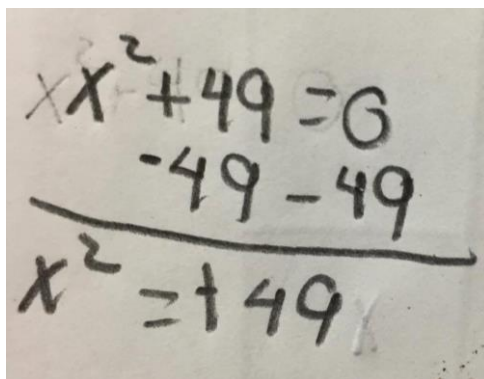 x² + 49 = 0
-49 - 49
x² = + 49